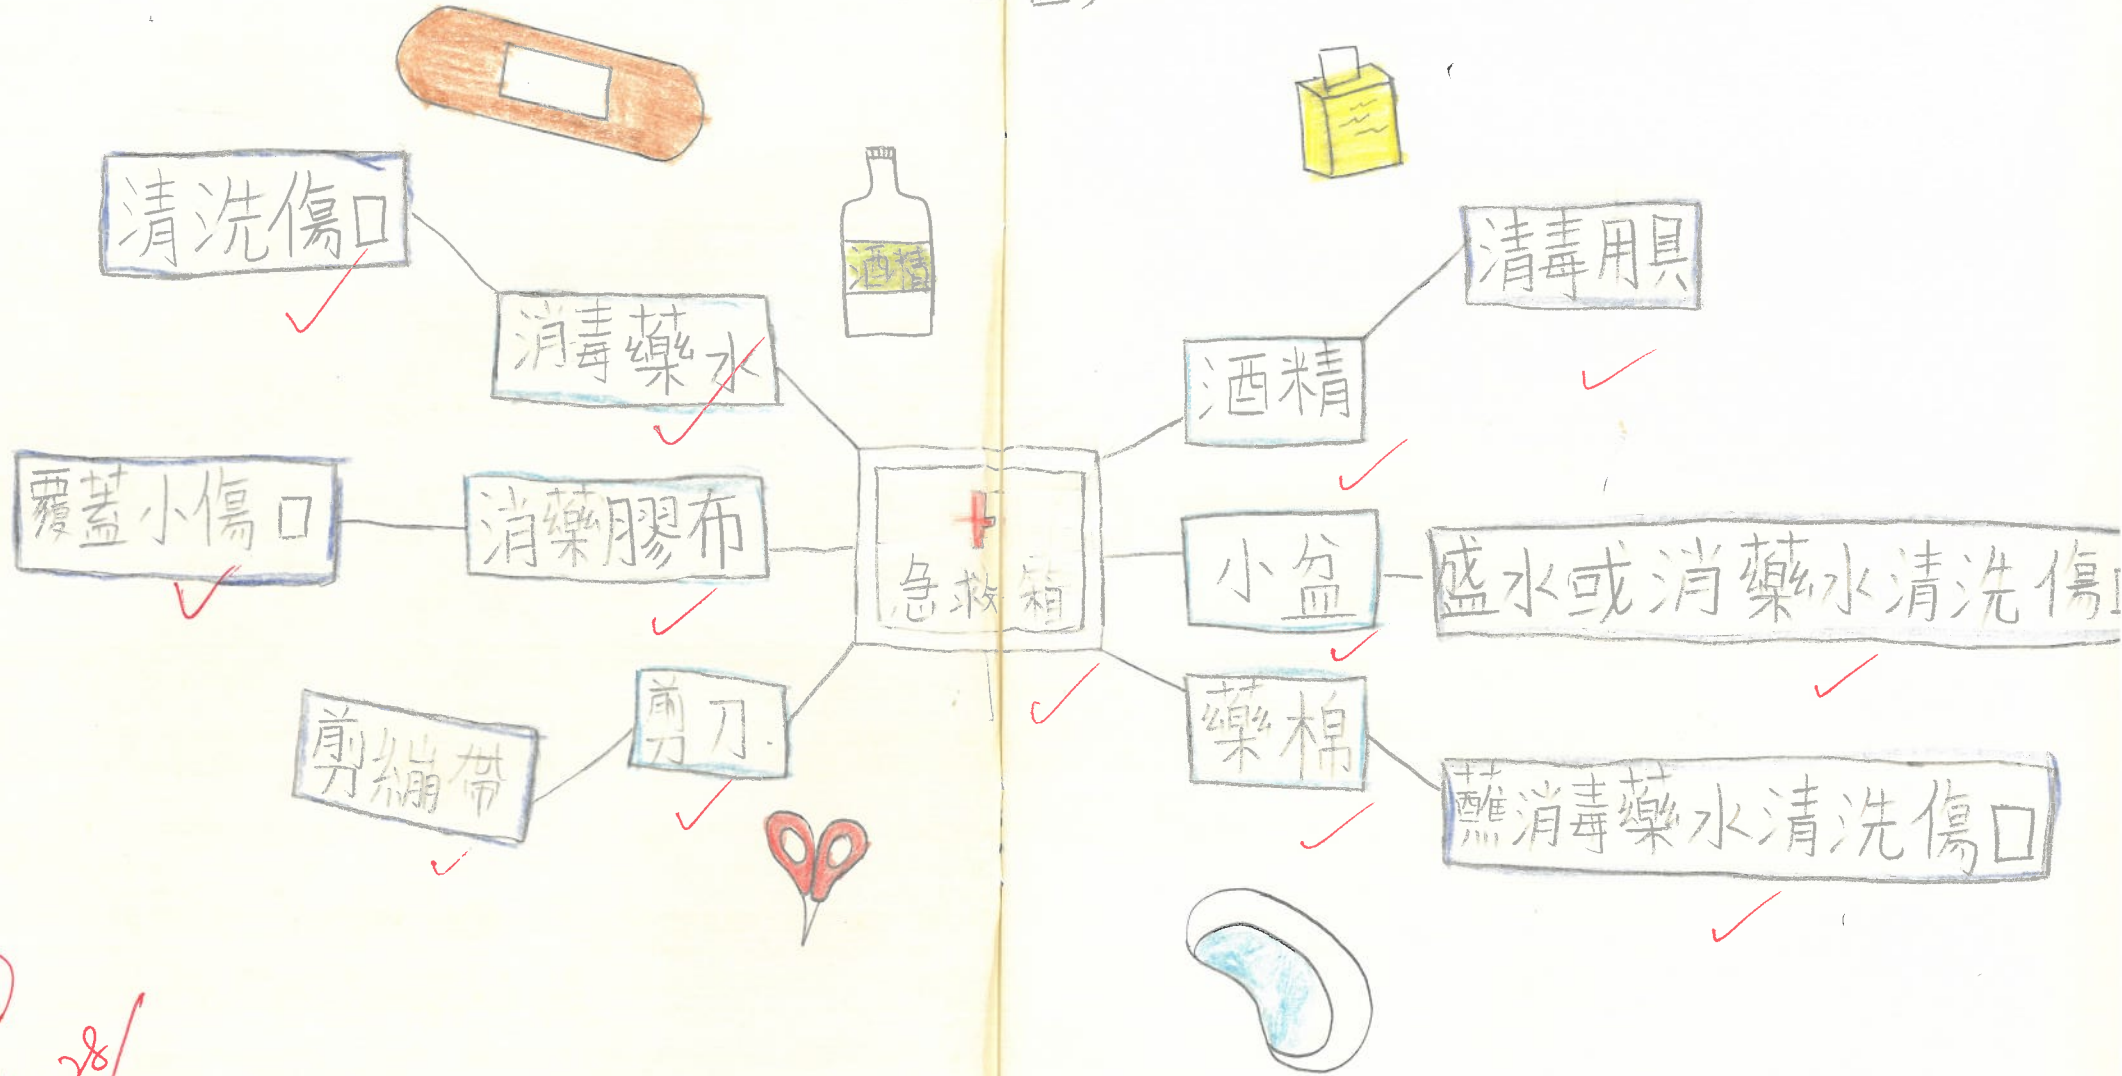 清洗傷口
消毒藥水
酒精
覆蓋小傷口
消藥膠布
剪繃帶
剪刀
急救箱
酒精
清毒用具
小盆
盛水或消藥水清洗傷口
藥棉
蘸消毒藥水清洗傷口
28/